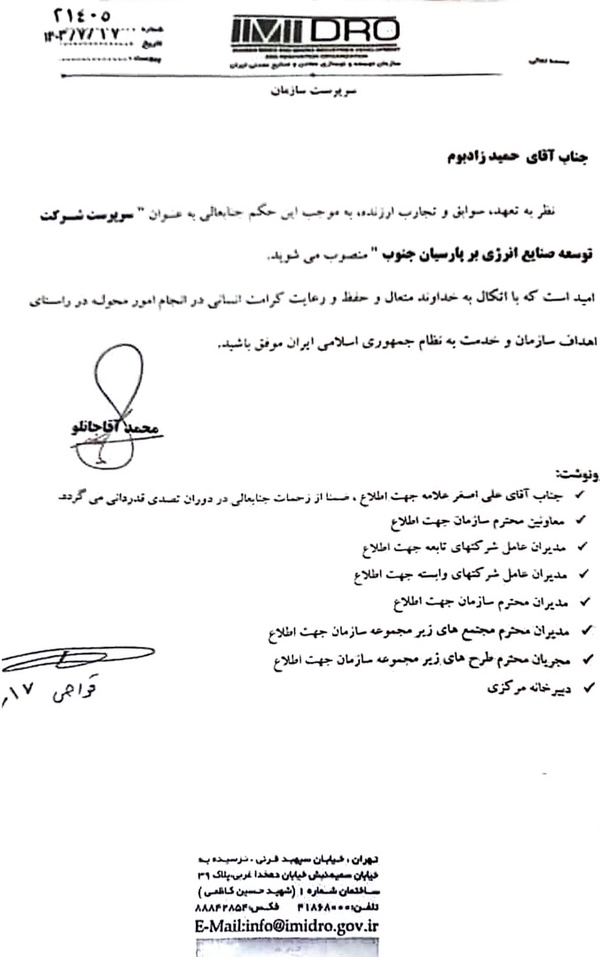 بسمه تعالی
IMIDRO
IRANIAN MINES AND MINING INDUSTRIES DEVELOPMENT
AND RENOVATION ORGANIZATION
سازمان توسعه و نوسازی معادن و صنایع معدنی ایران
شماره ۲۱۴۰۵
تاریخ ۱۴۰۳/۷/۱۷
پیوست
سرپرست سازمان
جناب آقای حمید زادبوم
نظر به تعهد، سوابق و تجارب ارزنده، به موجب این حکم جنابعالی به عنوان " سرپرست شرکت
توسعه صنایع انرژی بر پارسیان جنوب " منصوب می شوید.
امید است که با اتکال به خداوند متعال و حفظ و رعایت کرامت انسانی در انجام امور محوله در راستای
اهداف سازمان و خدمت به نظام جمهوری اسلامی ایران موفق باشید.
محمد آقاجانلو
رونوشت:
✓ جناب آقای علی اصغر علامه جهت اطلاع ، ضمنا از زحمات جنابعالی در دوران تصدی قدردانی می گردد.
✓ معاونین محترم سازمان جهت اطلاع
✓ مدیران عامل شرکتهای تابعه جهت اطلاع
✓ مدیران عامل شرکتهای وابسته جهت اطلاع
✓ مدیران محترم سازمان جهت اطلاع
✓ مدیران محترم مجتمع های زیر مجموعه سازمان جهت اطلاع
✓ مجریان محترم طرح های زیر مجموعه سازمان جهت اطلاع
✓ دبیرخانه مرکزی
۱۷
تهران ، خیابان سپهبد قرنی ، نرسیده به
خیابان سمیه،نبش خیابان دهخدا غربی،پلاک ۳۹
ساختمان شماره ۱ (شهید حسین کاظمی )
تلفن:۴۱۸۶۸۰۰۰ فکس:۸۸۸۴۲۸۵۴
E-Mail:info@imidro.gov.ir